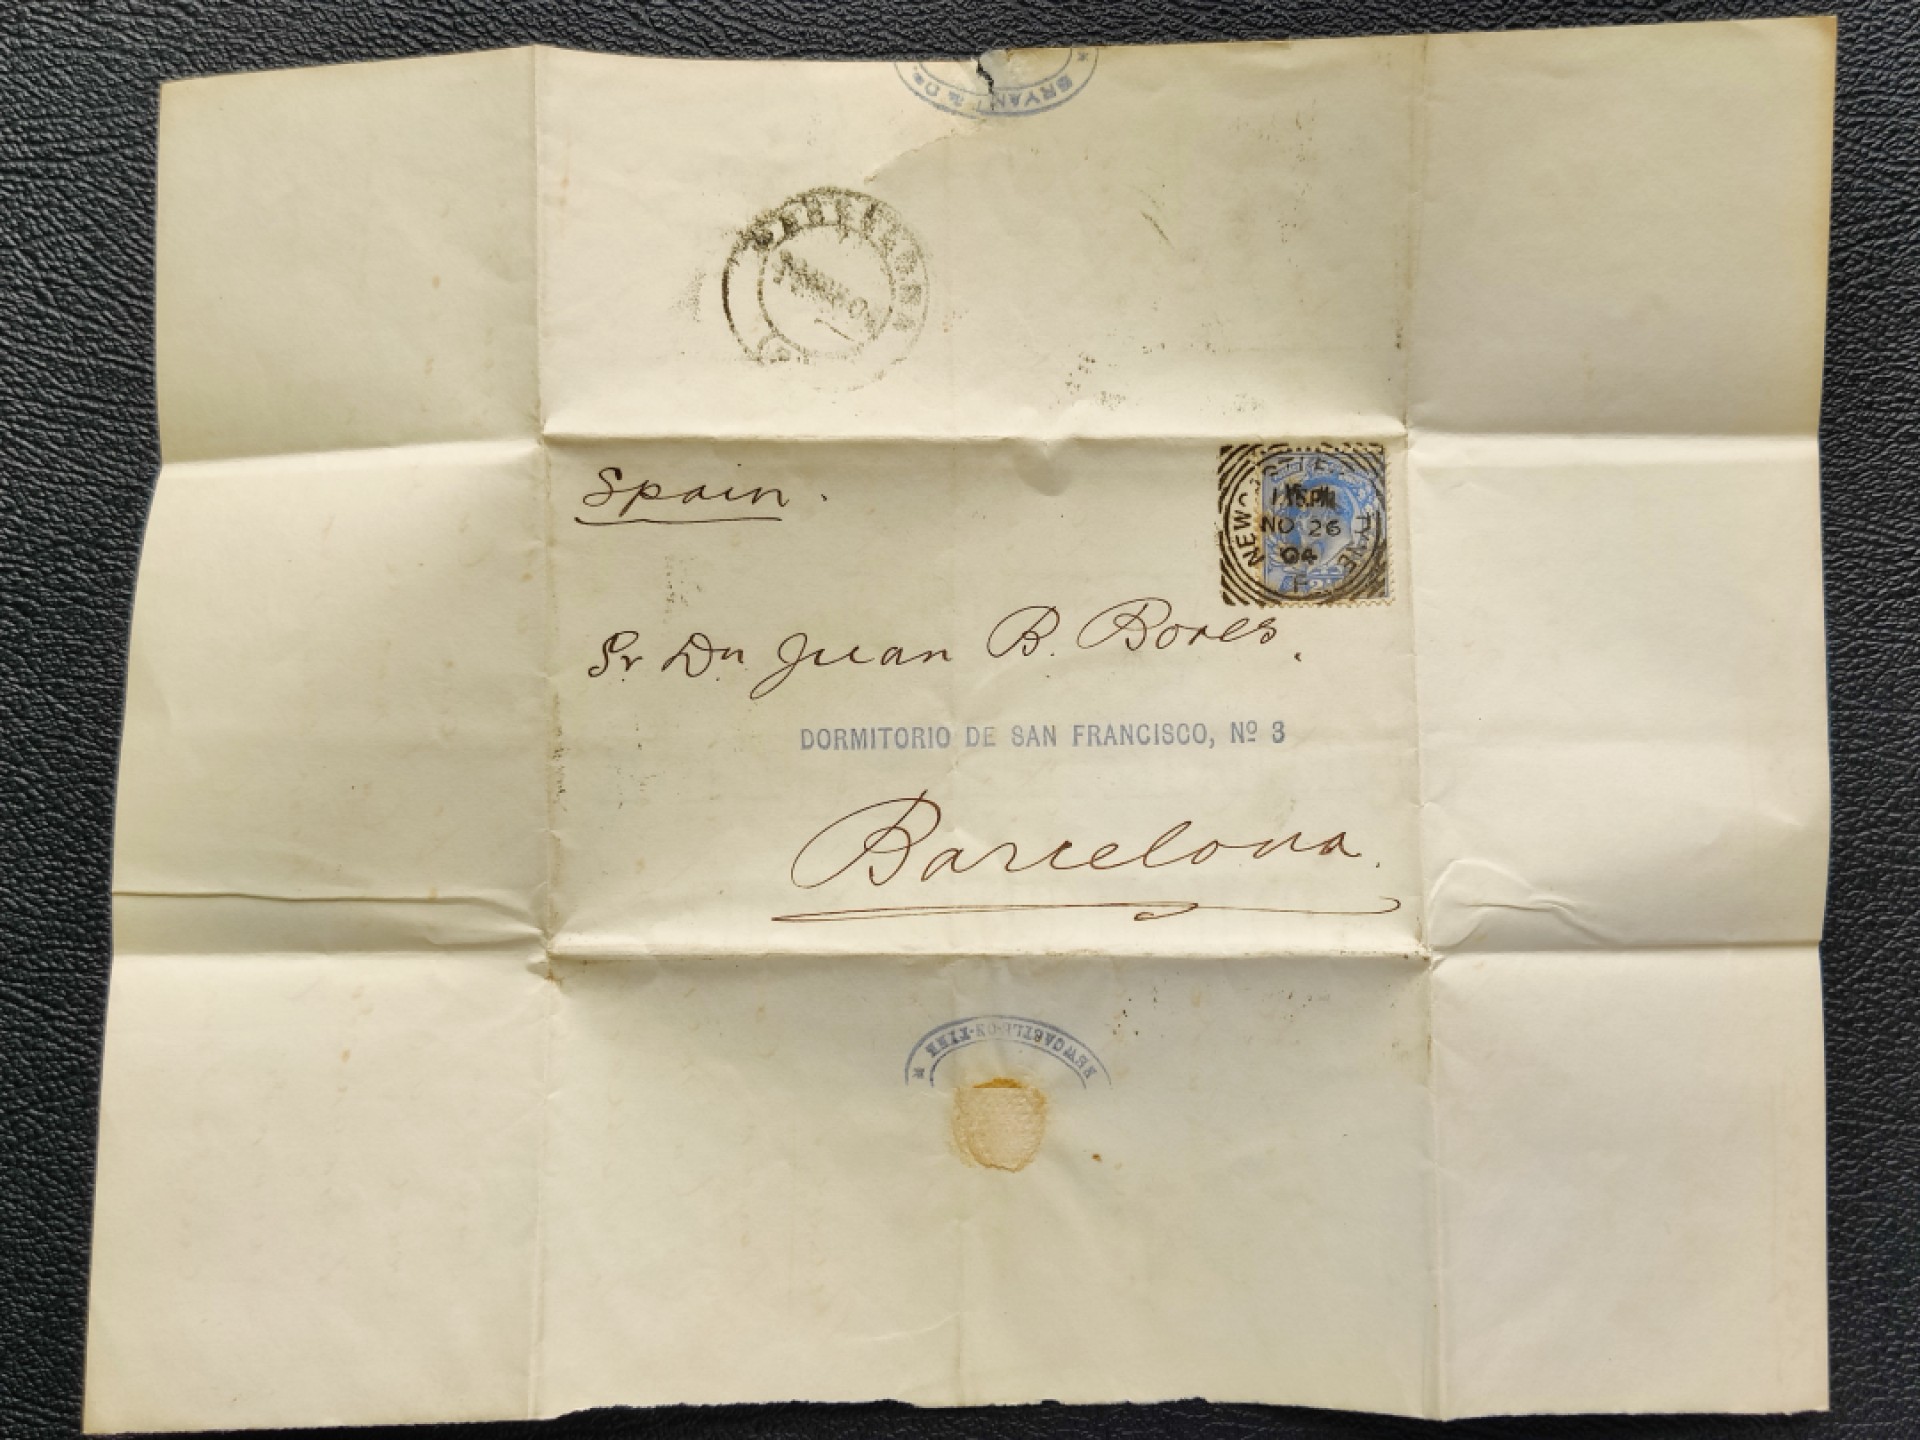 BRYANT & Co.
Spain.
NEWCASTLE TYNE
NO 26
04
F
Sr Dn Juan B. Bores.
DORMITORIO DE SAN FRANCISCO, Nº 3
Barcelona.
NEWCASTLE-ON-TYNE